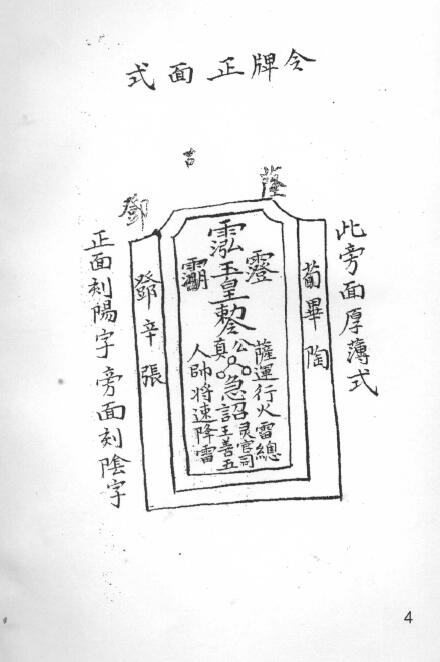 令牌正面式
鄧
此旁面厚薄式
荀畢陶
薩運行火雷總
公
灵官司
玉皇敕令
急詔
王善五
真
人帥將速降雷
鄧辛張
正面刻陽字旁面刻陰字
4